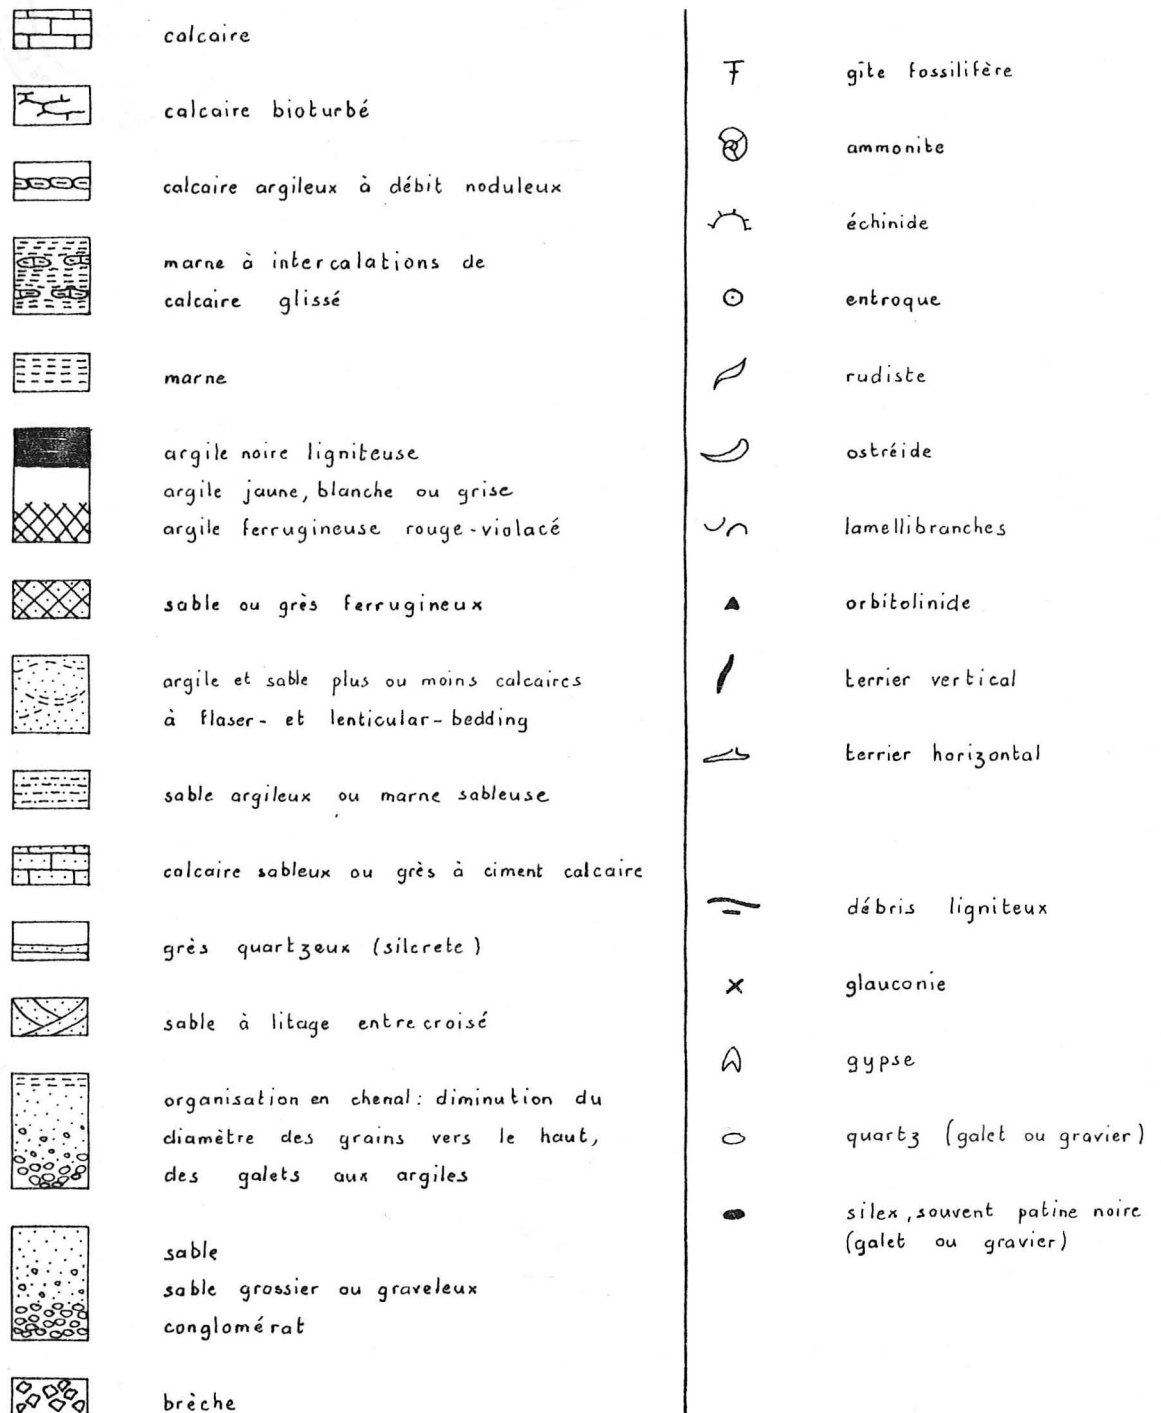 calcaire
calcaire bioturbé
calcaire argileux à débit noduleux
marne à intercalations de
calcaire glissé
marne
argile noire ligniteuse
argile jaune, blanche ou grise
argile ferrugineuse rouge-violacé
sable ou grès ferrugineux
argile et sable plus ou moins calcaires
à flaser- et lenticular-bedding
sable argileux ou marne sableuse
calcaire sableux ou grès à ciment calcaire
grès quartzeux (silcrete)
sable à litage entrecroisé
organisation en chenal: diminution du
diamètre des grains vers le haut,
des galets aux argiles
sable
sable grossier ou graveleux
conglomérat
brèche
gîte fossilifère
ammonite
échinide
entroque
rudiste
ostréide
lamellibranches
orbitolinide
terrier vertical
terrier horizontal
débris ligniteux
glauconie
gypse
quartz (galet ou gravier)
silex, souvent patine noire
(galet ou gravier)